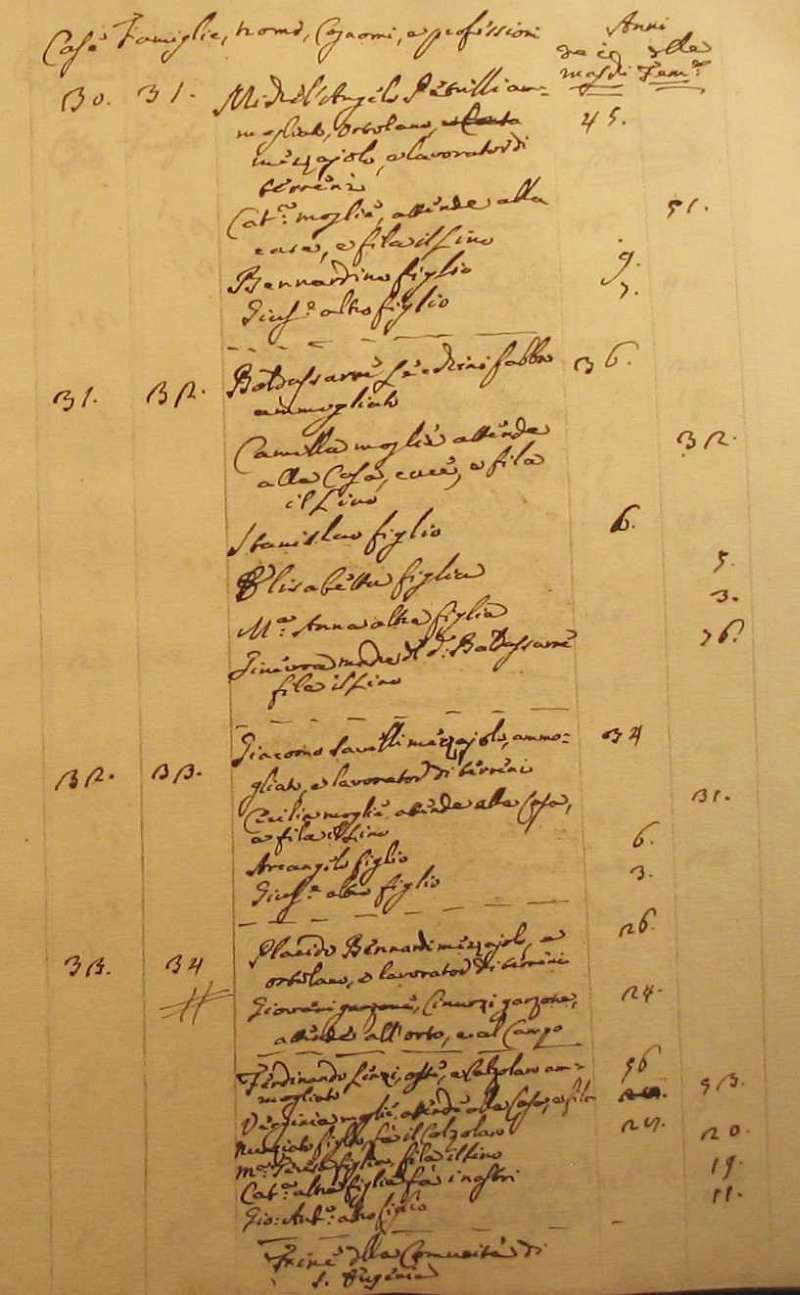 Case Famiglie, nomi, Cognomi, e professioni Anni
de
maschi Fem.e
30. 31. Michel'Angelo Petrilli am=
mogliato, ortolano, e 45.
mezzajolo, e lavorator di
terreni
Cat.a moglie, attende alla 51.
casa, e fila il Lino
Bernardino figlio 9.
Gius.e altro figlio 7.
31. 32. Baldassarre fabbro 36.
ammogliato
Camilla moglie attende 32.
alla Casa, cuce, e fila
il Lino
Stanislao figlio 6.
Elisabetta figlia 5.
M.a Anna altra figlia 3.
Ginevra madre di d.o Baldassarre 76.
fila il Lino
32. 33. Giacomo Savelli mezzajolo, ammo= 34
gliato, e lavorator di terreni
Cecilia moglie attende alla Casa, 31.
e fila il Lino
Arcangelo figlio 6.
Gius.e altro figlio 3.
33. 34 Placido Bernardi mezzajolo, e 26.
ortolano, e lavorator di terreni
Giovanni garzone, garzone, 24.
attende all'orto, e al Campo
Ferdinando oste, e Calzolaro am= 56
mogliato
Virginia moglie, attende alla Casa, e fila 53.
Nunziato figlio, fa il Calzolaro
M.a Teresa figlia, fila il Lino 20.
Cat.a altra figlia fa i nastri 19.
Gio: Ant.o altro figlio 11.
Fine della Comunità di
S.